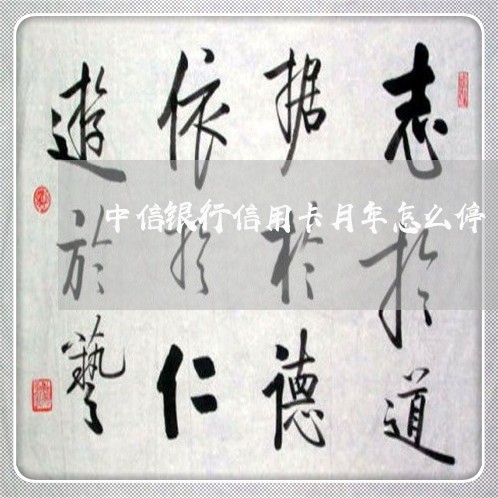 志於道
据於德
依於仁
遊於藝
中信银行信用卡月年怎么停